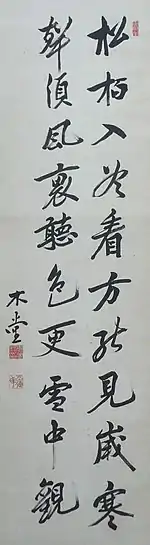 松栢入冬看方能見歳寒
聲須風裏聽色更雪中觀
木堂